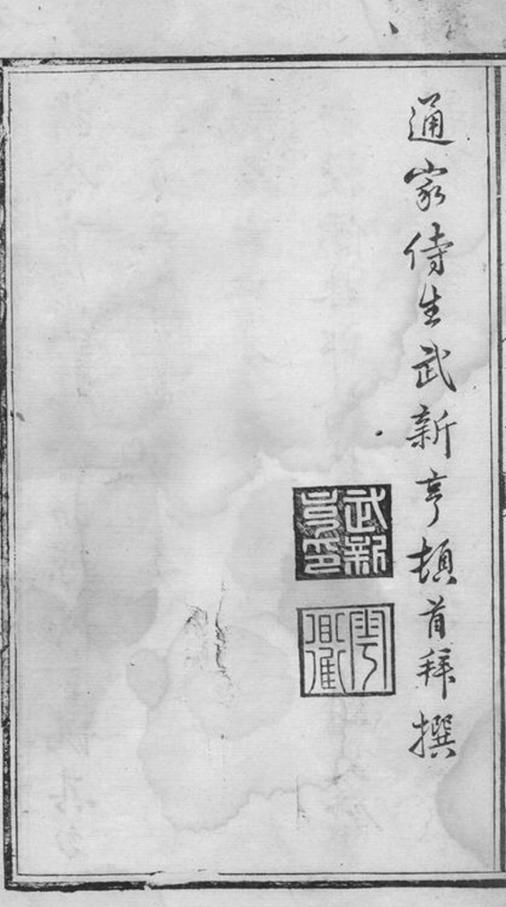 通家侍生武新亨頓首拜撰
武新亨印